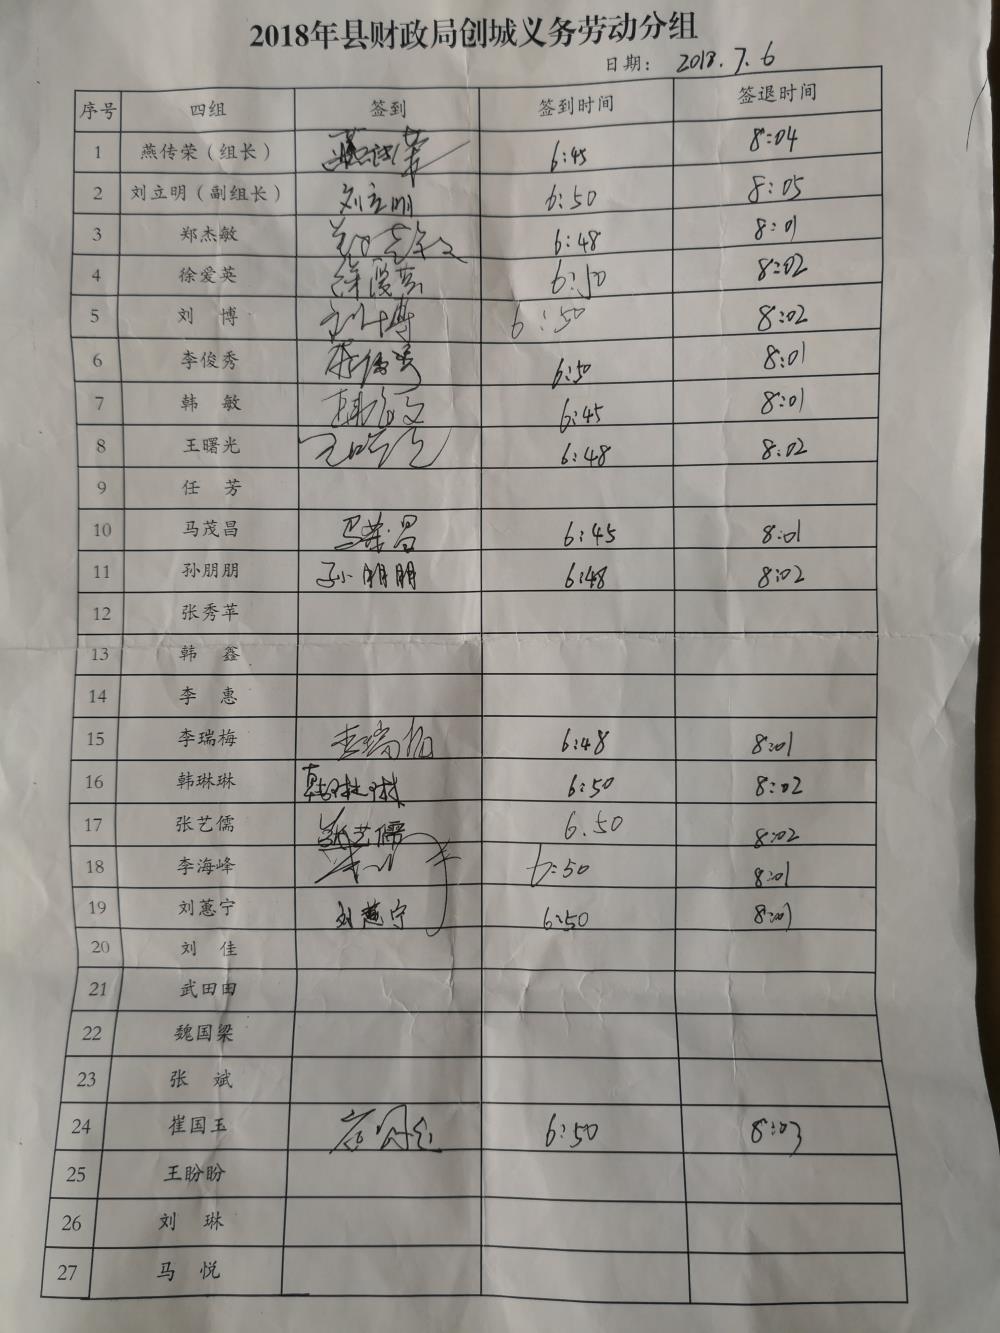 2018年县财政局创城义务劳动分组
日期： 2018.7.6
序号 四组 签到 签到时间 签退时间
1 燕传荣（组长） 燕传荣 6:45 8:04
2 刘立明（副组长） 刘立明 6:50 8:05
3 郑杰敏 郑杰敏 6:48 8:01
4 徐爱英 徐爱英 6:50 8:02
5 刘 博 刘博 6:50 8:02
6 李俊秀 李俊秀 6:50 8:01
7 韩 敏 韩敏 6:45 8:01
8 王曙光 王曙光 6:48 8:02
9 任 芳
10 马茂昌 马茂昌 6:45 8:01
11 孙朋朋 孙朋朋 6:48 8:02
12 张秀苹
13 韩 鑫
14 李 惠
15 李瑞梅 李瑞梅 6:48 8:01
16 韩琳琳 韩琳琳 6:50 8:02
17 张艺儒 张艺儒 6.50 8:02
18 李海峰 6:50 8:01
19 刘蕙宁 刘蕙宁 6:50 8:01
20 刘 佳
21 武田田
22 魏国梁
23 张 斌
24 崔国玉 崔国玉 6:50 8:03
25 王盼盼
26 刘 琳
27 马 悦